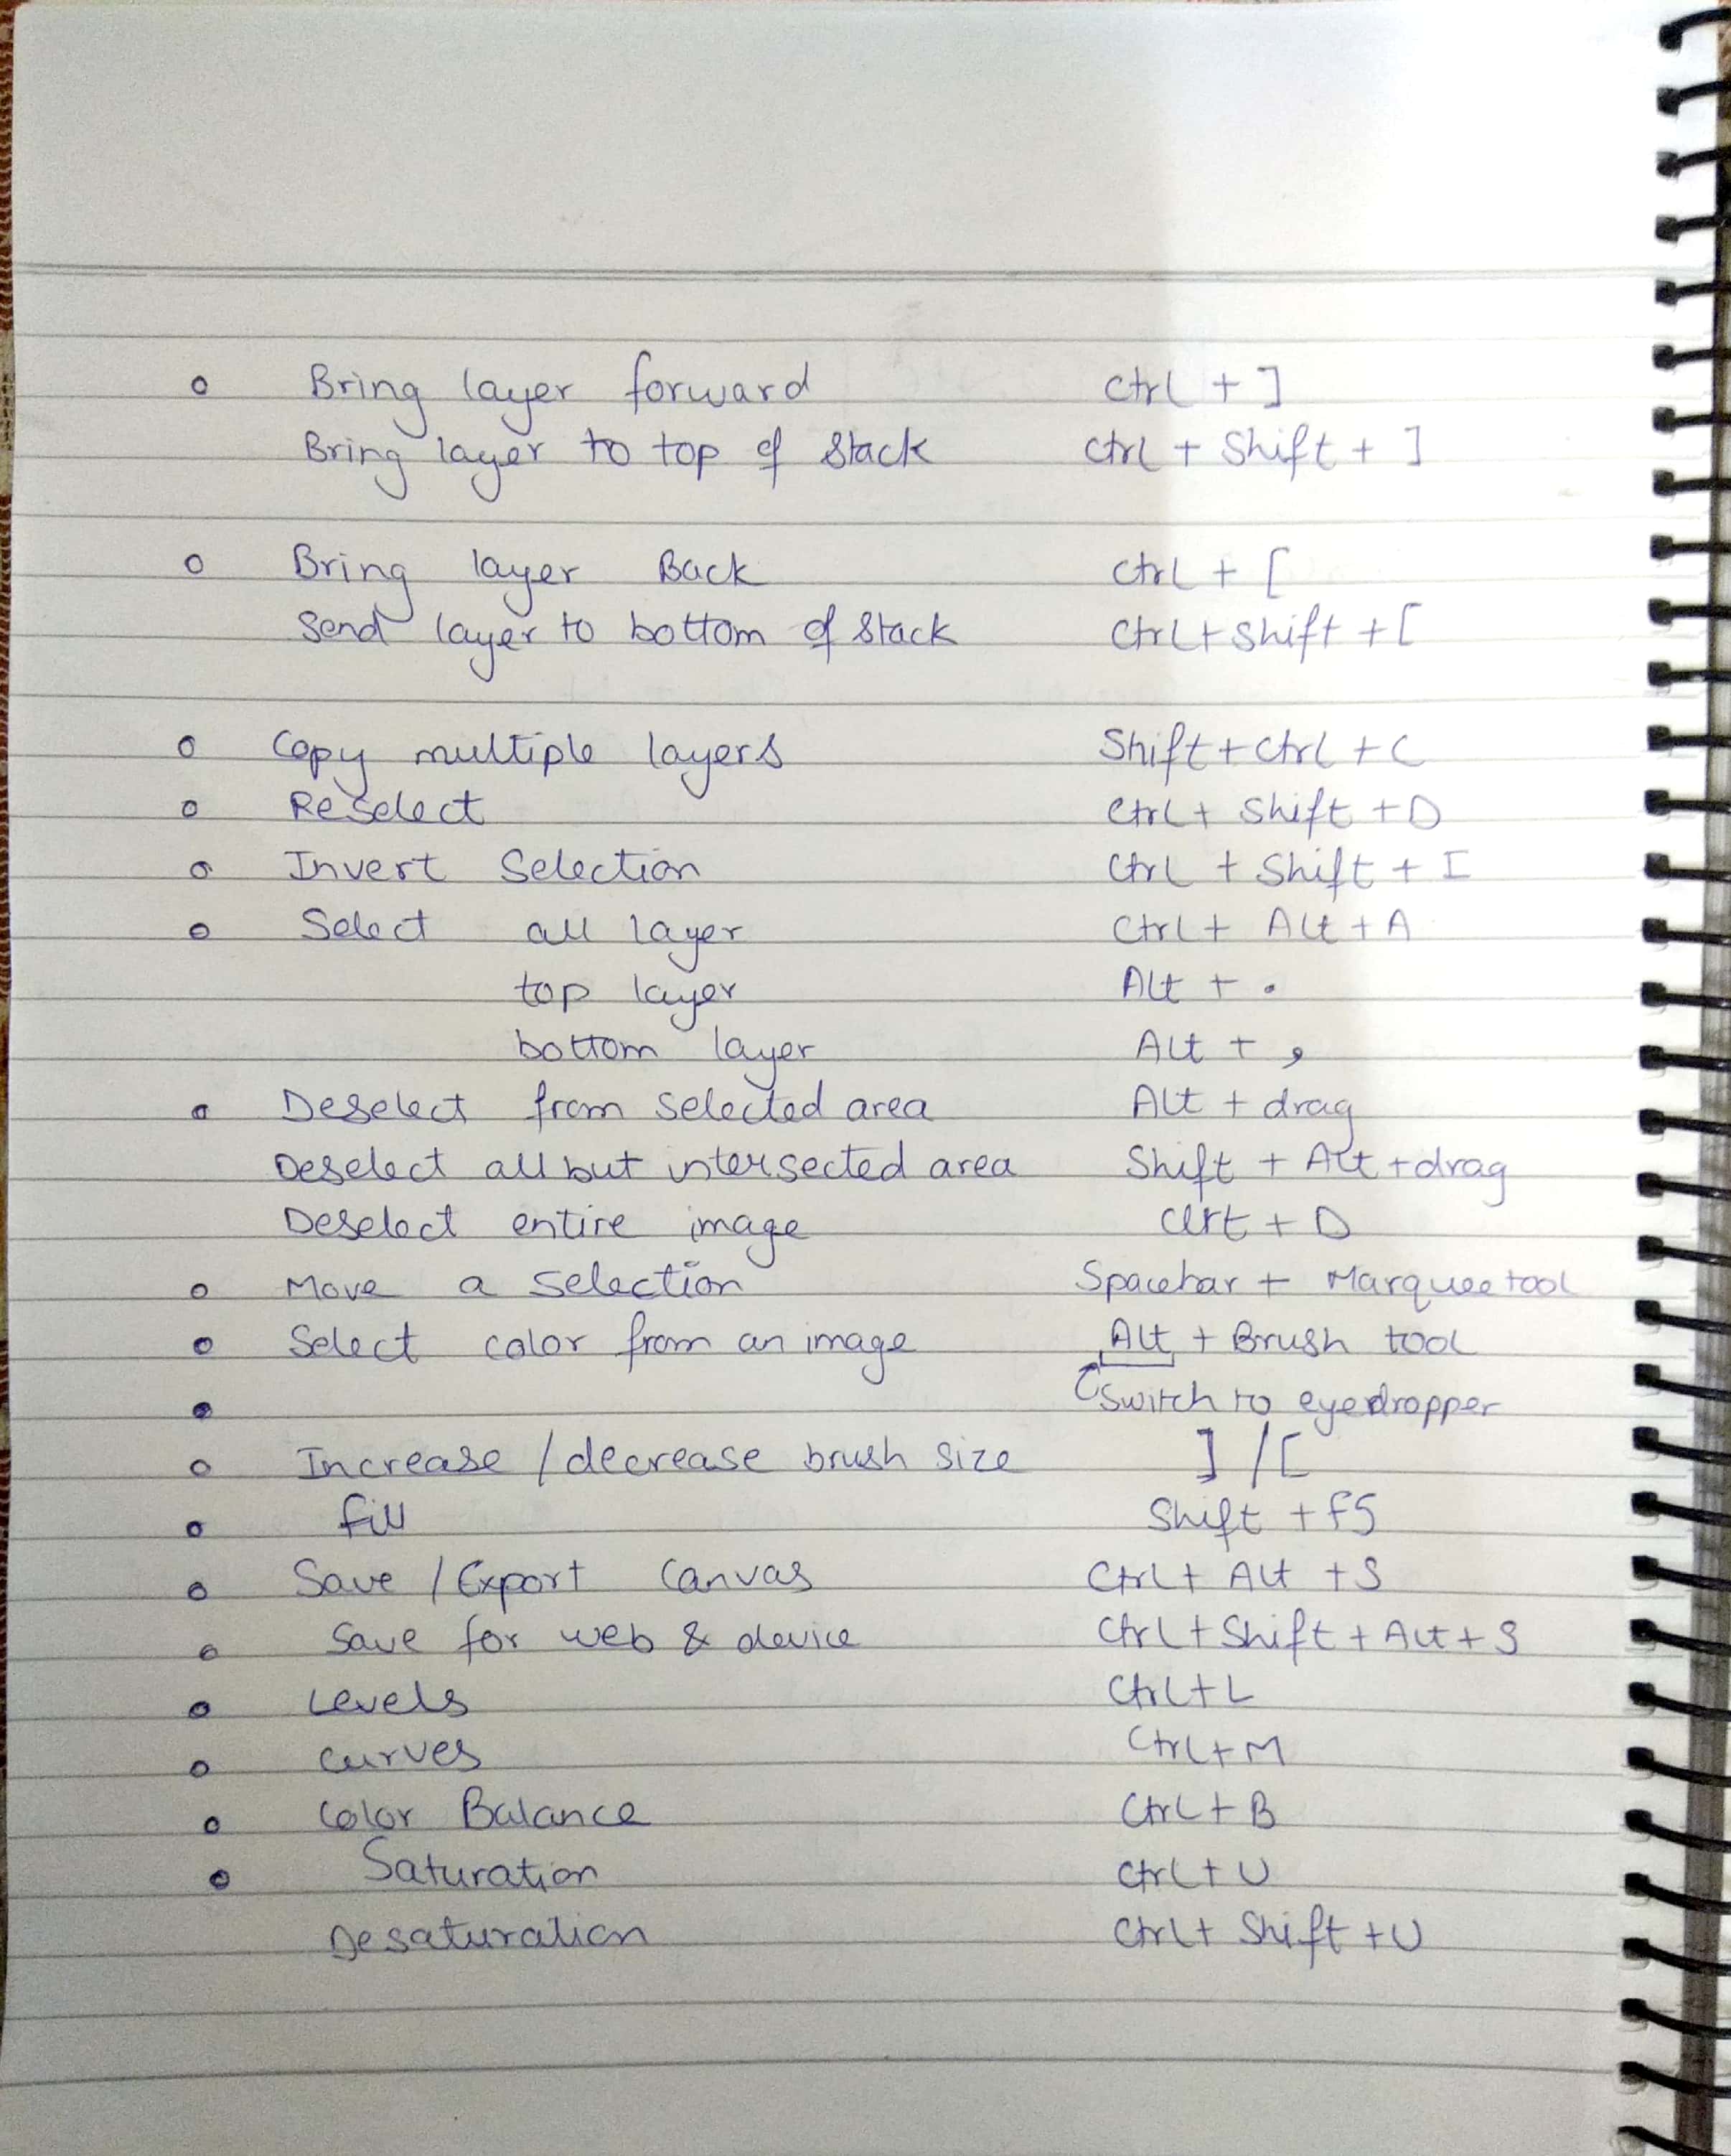 Bring layer forward Ctrl + ]
Bring layer to top of stack Ctrl + Shift + ]
Bring layer Back Ctrl + [
Send layer to bottom of stack Ctrl + Shift + [
Copy multiple layers Shift + Ctrl + C
Reselect Ctrl + Shift + D
Invert Selection Ctrl + Shift + I
Select all layer Ctrl + Alt + A
top layer Alt + .
bottom layer Alt + ,
Deselect from selected area Alt + drag
Deselect all but intersected area Shift + Alt + drag
Deselect entire image Clrt + D
Move a selection Spacebar + Marquee tool
Select color from an image Alt + Brush tool
Switch to eyedropper
Increase / decrease brush size ] / [
fill Shift + F5
Save / Export Canvas Ctrl + Alt + S
Save for web & device Ctrl + Shift + Alt + S
Levels Ctrl + L
Curves Ctrl + M
Color Balance Ctrl + B
Saturation Ctrl + U
Desaturation Ctrl + Shift + U